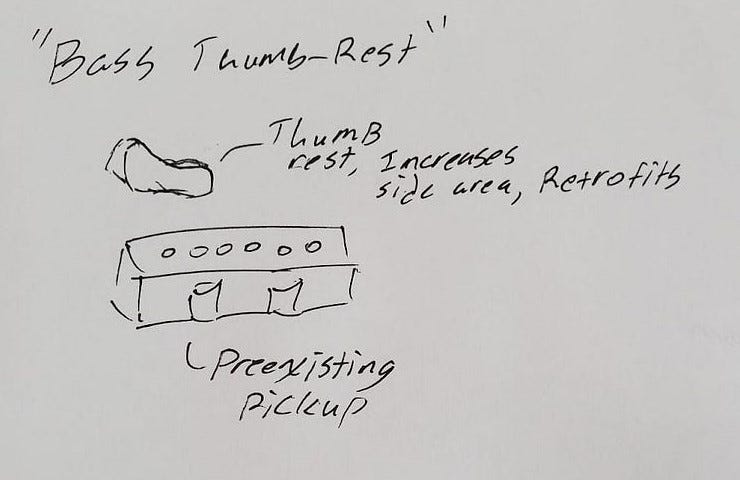 "Bass Thumb-Rest"
Thumb
rest, Increases
side area, Retrofits
Preexisting
Pickup